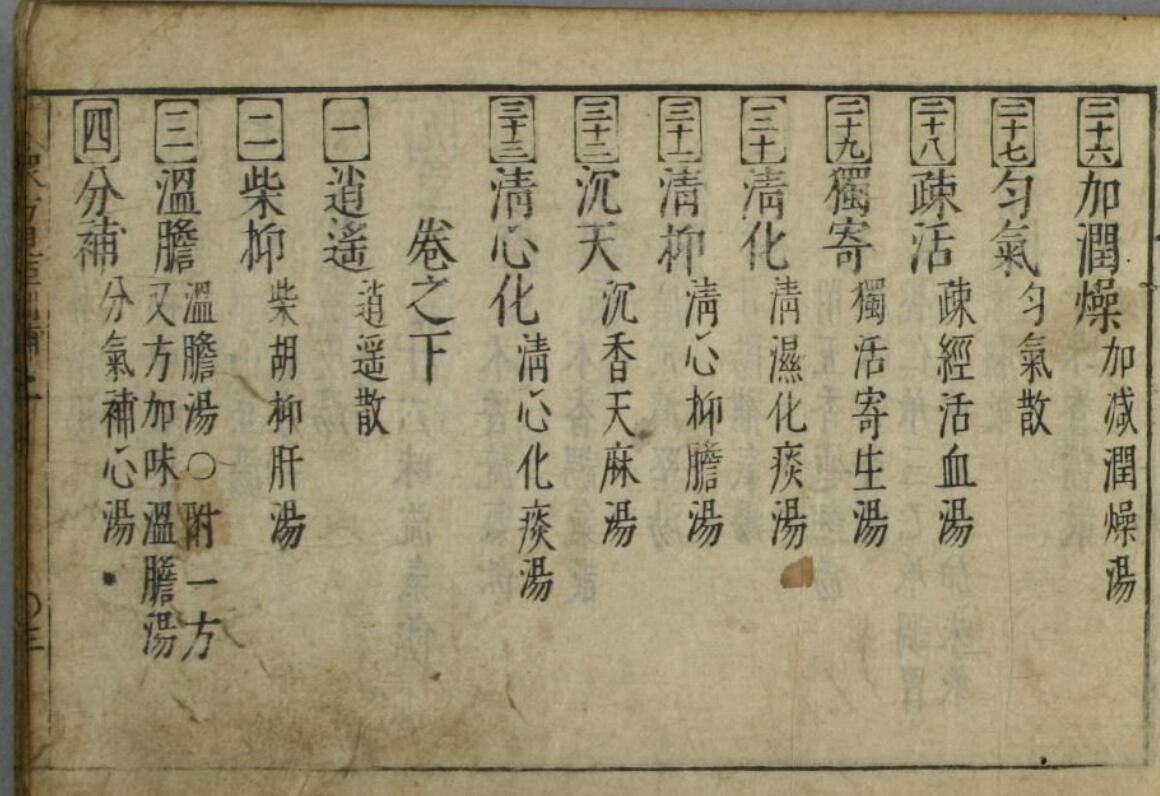 二十六 加潤燥 加減潤燥湯
二十七 勻氣 勻氣散
二十八 疎活 疎經活血湯
二十九 獨寄 獨活寄生湯
三十 淸化 淸濕化痰湯
三十一 淸抑 淸心抑膽湯
三十二 沉天 沉香天麻湯
三十三 淸心化 淸心化痰湯
卷之下
一 逍遙 逍遥散
二 柴抑 柴胡抑肝湯
三 溫膽 溫膽湯〇附一方
又方加味溫膽湯
四 分補 分氣補心湯